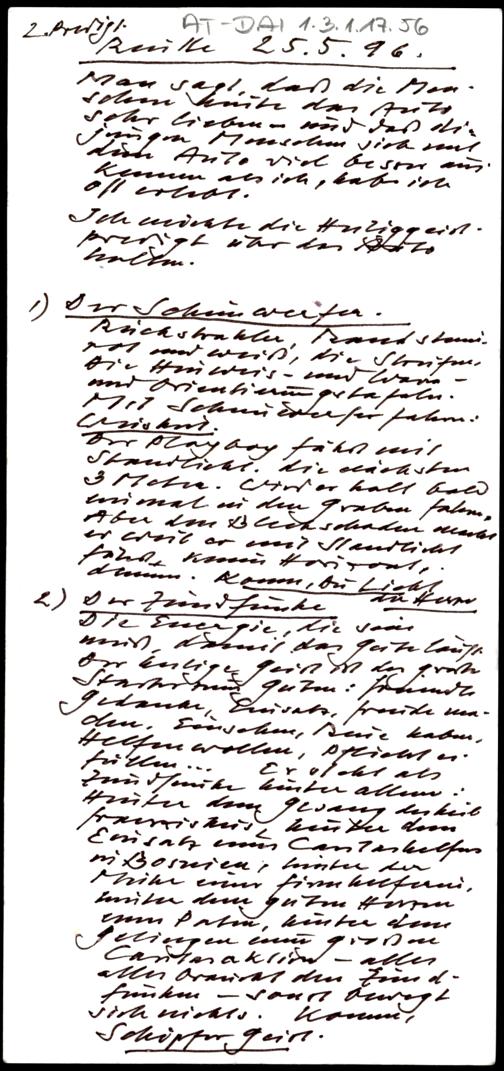 2. Predigt.
AT-DAI 1.3.1.17.56
25.5.96.
Man sagt, daß die Men-
schen heute das Auto
sehr lieben – und daß die
jungen Menschen sich mit
dem Auto viel besser aus-
kennen als ich, habe ich
oft erlebt.
Ich möchte die Heiliggeist-
predigt über das Auto
halten.
1) Der Scheinwerfer.
Rückstrahler,
rot und weiß, die Streifen
die Hinweis- und Warn-
und Orientierungstafeln.
Mit Scheinwerfer fahren:
Weisheit.
Der Playboy fährt mit
Standlicht. die nächsten
3 Meter. Wird er halt bald
einmal in den Graben fahren.
Aber den Blechschaden macht
er weil er mit Standlicht
fährt, kein Horizont,
Komm, Du Licht
der Herzen
2) Der Zündfunke
Die Energie, die sein
muß, damit das Gute läuft.
Der heilige Geist ist der große
Starter zum Guten:
Gedanke, Einsatz, Freude ma-
chen, Einsehen, Reue haben,
Helfenwollen, Pflicht er-
füllen... Er steht als
Zündfunke hinter allem:
Hinter dem Gesang
hinter dem
Einsatz eines Caritashelfers
in Bosnien, hinter der
Mühe einer Firmhelferin,
hinter dem guten Herzen
eines Paten, hinter dem
Gelingen einer großen
Caritasaktion – alles
alles braucht den Zünd-
funken – sonst bewegt
sich nichts. Komm,
Schöpfer Geist.